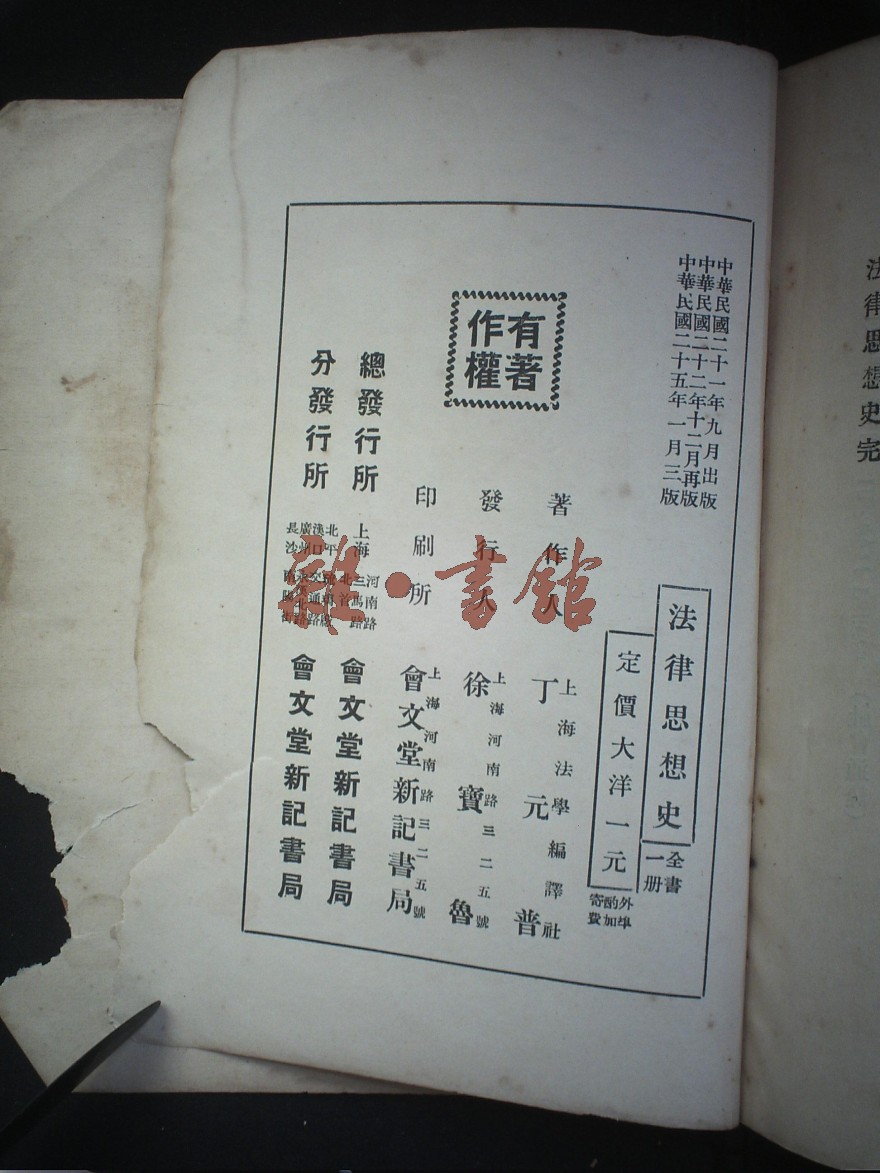 法律思想史完
中華民國二十一年九月出版
中華民國二十二年十二月再版
中華民國二十五年一月三版
法律思想史
全書一册
定價大洋一元
外埠酌加寄費
有著作權
著作人
上海法學編譯社
丁元普
發行人
上海河南路三二五號
徐寶魯
印刷所
上海河南路三二五號
會文堂新記書局
總發行所
上海
河南路
三馬路
北首
會文堂新記書局
分發行所
北平
漢口
廣州
長沙
會文堂新記書局
雜·書館